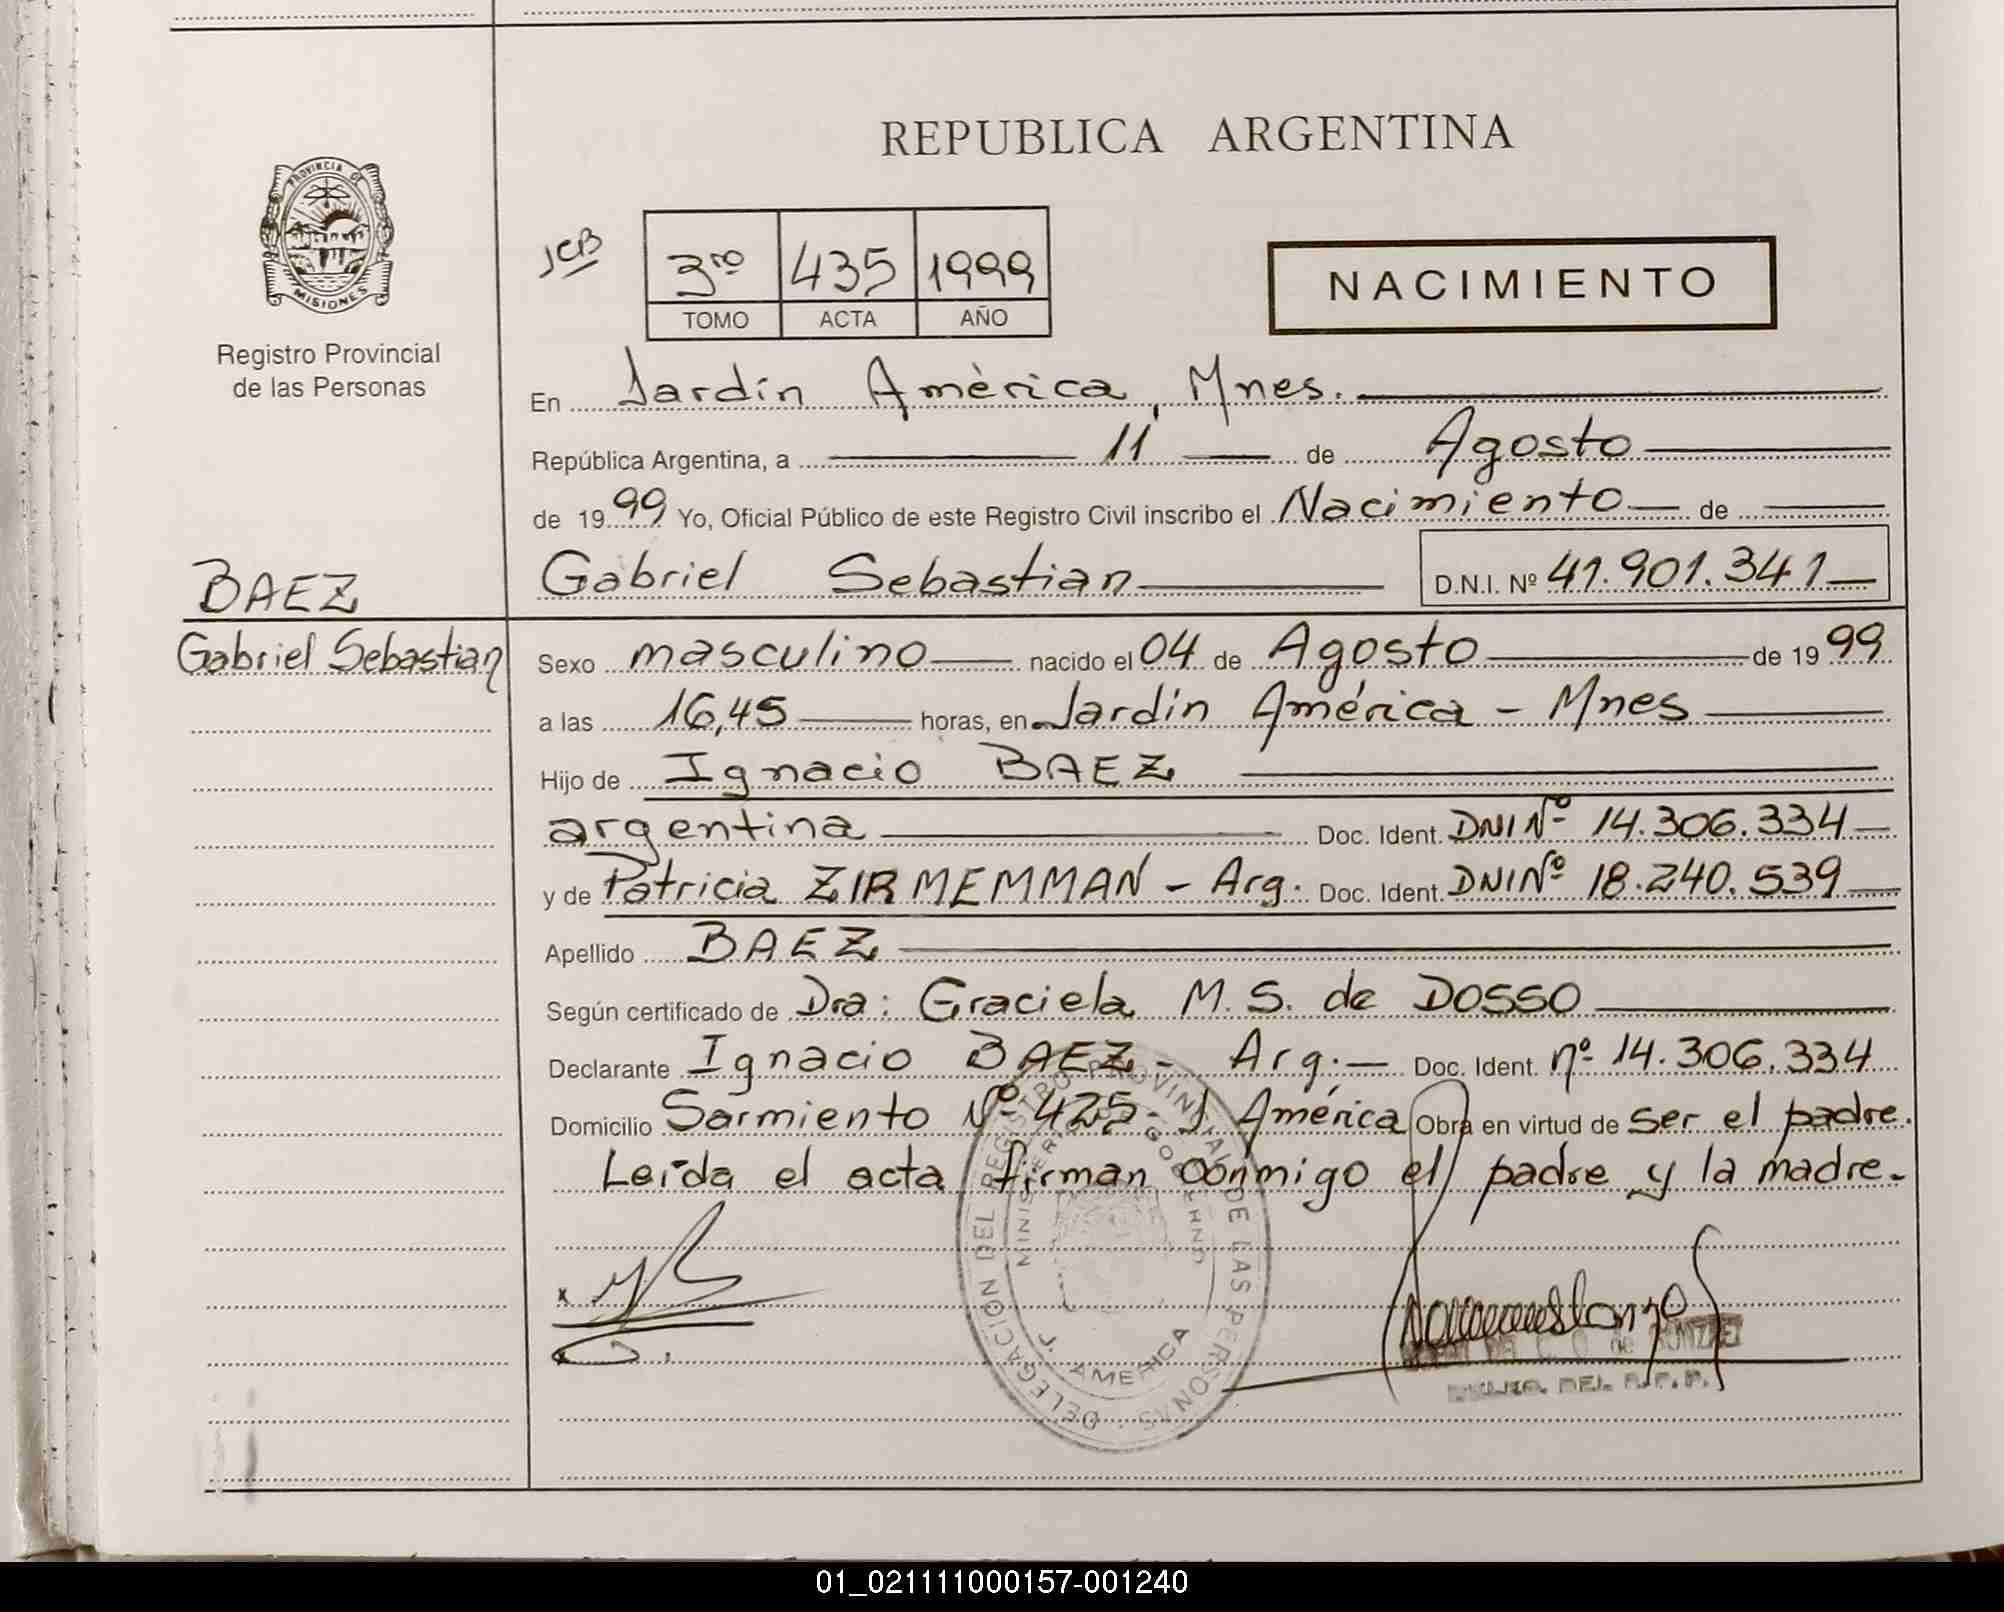 REPUBLICA ARGENTINA
PROVINCIA DE
MISIONES
Registro Provincial
de las Personas
JCB
3ro 435 1999
TOMO ACTA AÑO
NACIMIENTO
En Jardín América, Mnes.
República Argentina, a 11 de Agosto
de 1999 Yo, Oficial Público de este Registro Civil inscribo el Nacimiento de
Gabriel Sebastian D.N.I. Nº 41.901.341
BAEZ
Gabriel Sebastian
Sexo masculino nacido el 04 de Agosto de 1999
a las 16,45 horas, en Jardín América - Mnes
Hijo de Ignacio BAEZ
argentina Doc. Ident. DNI Nº 14.306.334
y de Patricia ZIRMEMMAN - Arg. Doc. Ident. DNI Nº 18.240.539
Apellido BAEZ
Según certificado de Dra: Graciela M. S. de DOSSO
Declarante Ignacio BAEZ - Arg. Doc. Ident. nº 14.306.334
Domicilio Sarmiento Nº 425- J. América Obra en virtud de ser el padre.
Leída el acta firman conmigo el padre y la madre.
DELEGACION DEL REGISTRO PROVINCIAL DE LAS PERSONAS
J. AMERICA
DEL R.P.P.
01_021111000157-001240